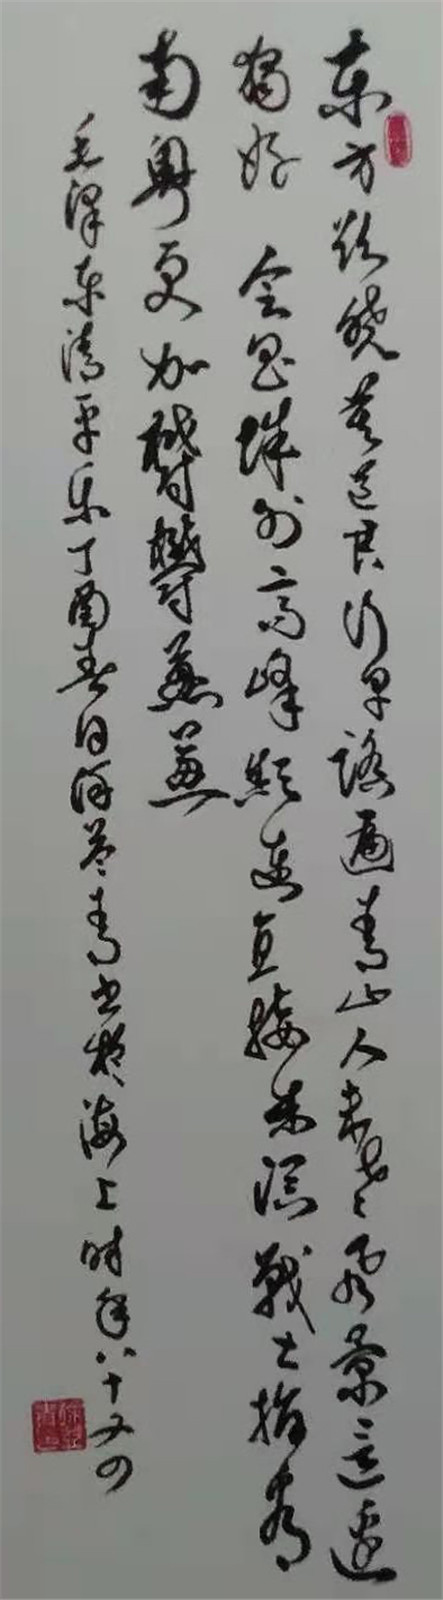 东方欲晓莫道君行早踏遍青山人未老风景這边
獨好 会昌城外高峰颠连直接东溟戰士指看
南粤更加鬱鬱葱葱
毛泽东清平乐丁酉春日徐青书於海上时年八十又四